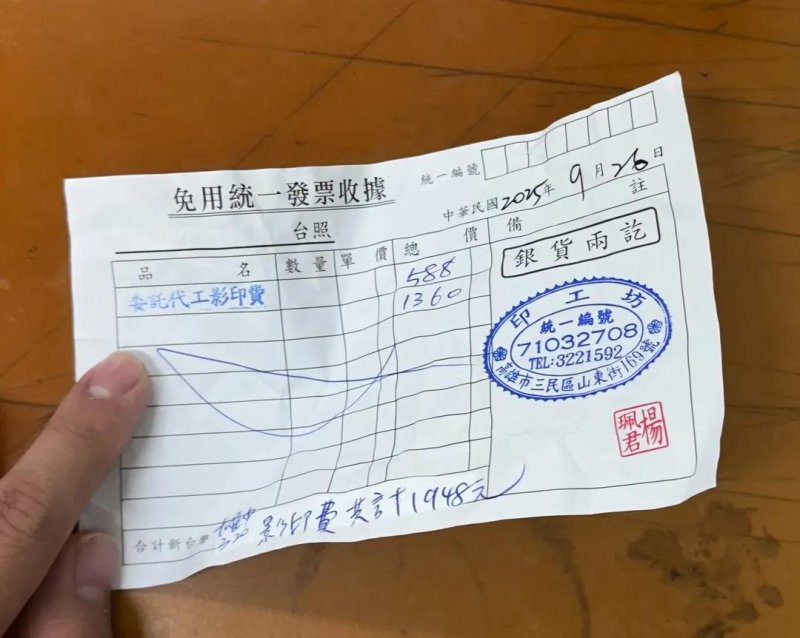 免用統一發票收據
統一編號
中華民國2025年9月26日
台照
品名 數量 單價 總價 備註
委託代工影印費 588
1360
銀貨兩訖
印工坊
統一編號
71032708
TEL:3221592
高雄市三民區山東街169號
楊珮君
合計新台幣 影印費 共計1948元